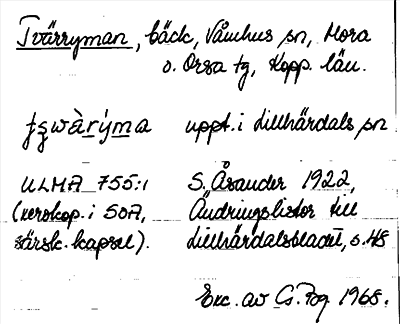 Tvärryman, bäck, Våmhus sn, Mora
o. Orsa tg, Kopp. län.
uppt. i Lillhärdals sn
ULMA 755:1 S. Åsander 1922,
(xeroxkop. i SOA, Ändringslistor till
särsk. kapsel). Lillhärdalsbladet, s. 48
Exc. av G. Pog 1968.